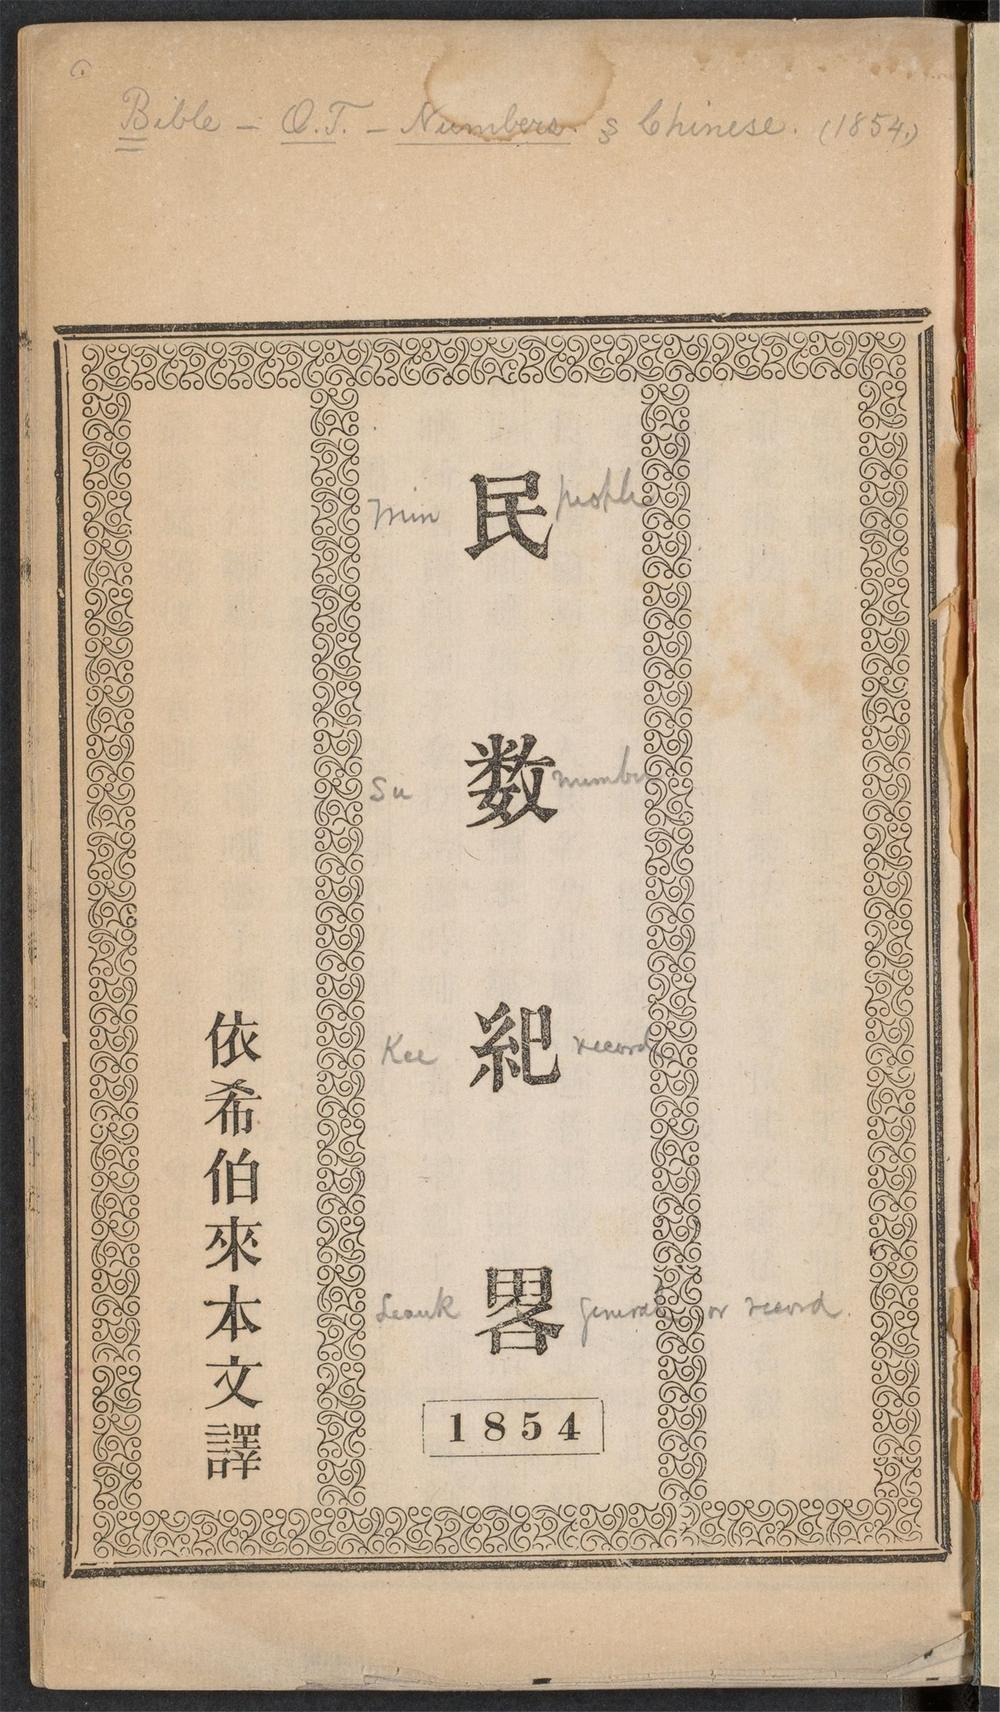 Bible - O.T. - Numbers. § Chinese. (1854.)
民数紀畧
Min people
Su number
Kee record
Leauk general or record.
1854
依希伯來本文譯